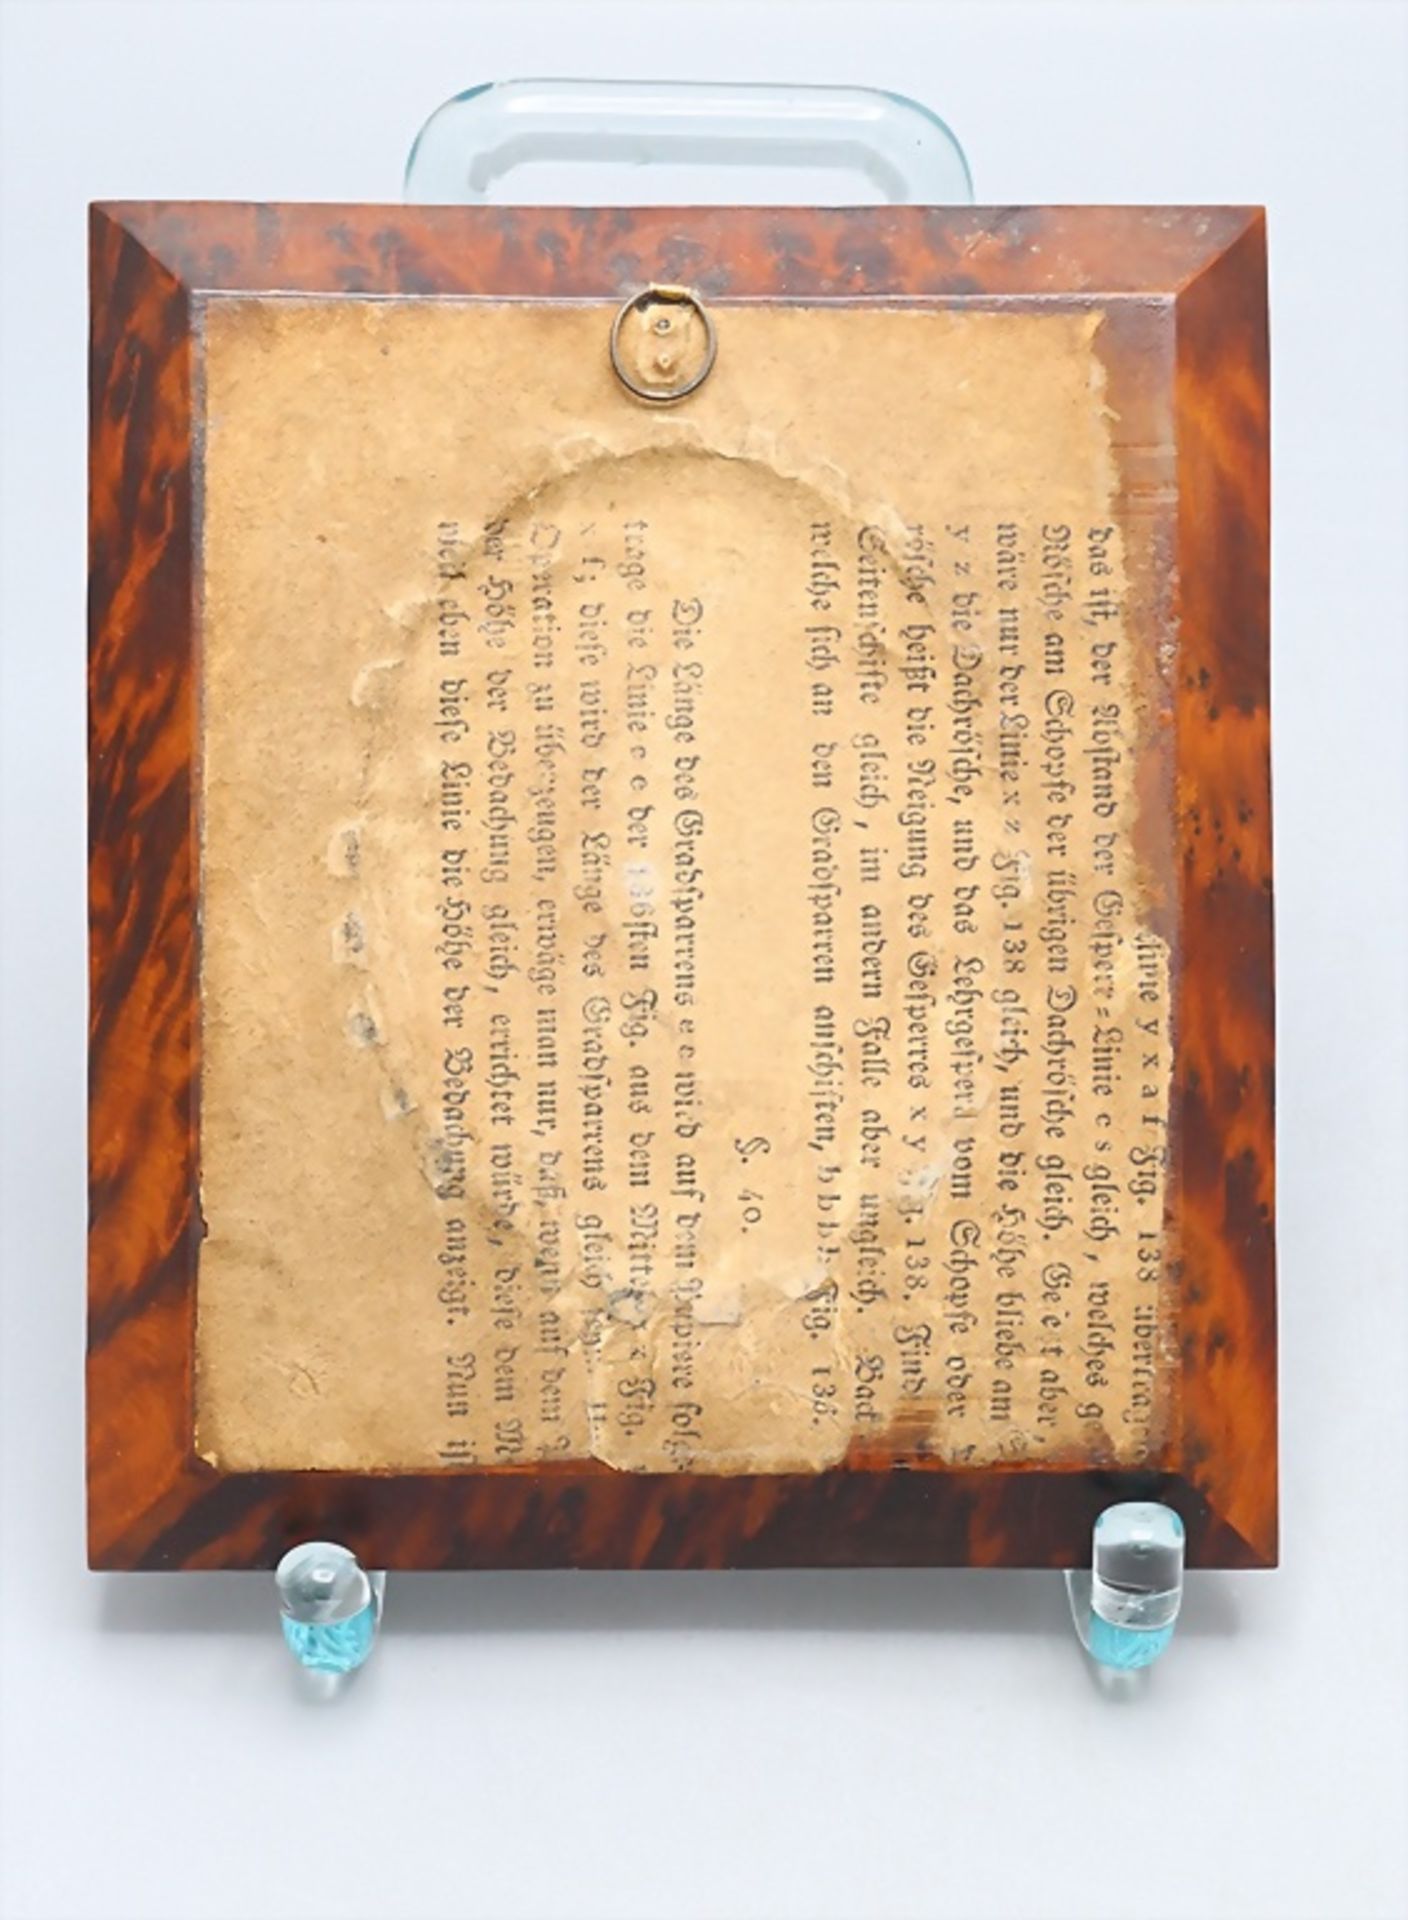 Linie y x a f Fig. 138 übertrage
das ist, der Abstand der Gesperr=Linie c s gleich, welches
Rösche am Schopfe der übrigen Dachrösche gleich. aber,
wäre nur der Linie x z Fig. 138 gleich, und die Höhe bliebe am
y z die Dachrösche, und das Lehrgesperr vom Schopfe oder
rösche heißt die Neigung des Gesperres x y Fig. 138. Sind
Seitenschifte gleich, im andern Falle aber ungleich.
welche sich an den Gradsparren anschiften, b b b Fig. 138.
§. 40.
Die Länge des Gradsparrens e e wird auf dem Papiere
trage die Linie c e der 136sten Fig. aus dem Mittel x Fig.
x f; diese wird der Länge des Gradsparrens gleich
Operation zu überzeugen, erwäge man nur, daß, wenn auf dem
der Höhe der Bedachung gleich, errichtet würde, diese dem
eben diese Linie die Höhe der Bedachung anzeigt. Nun